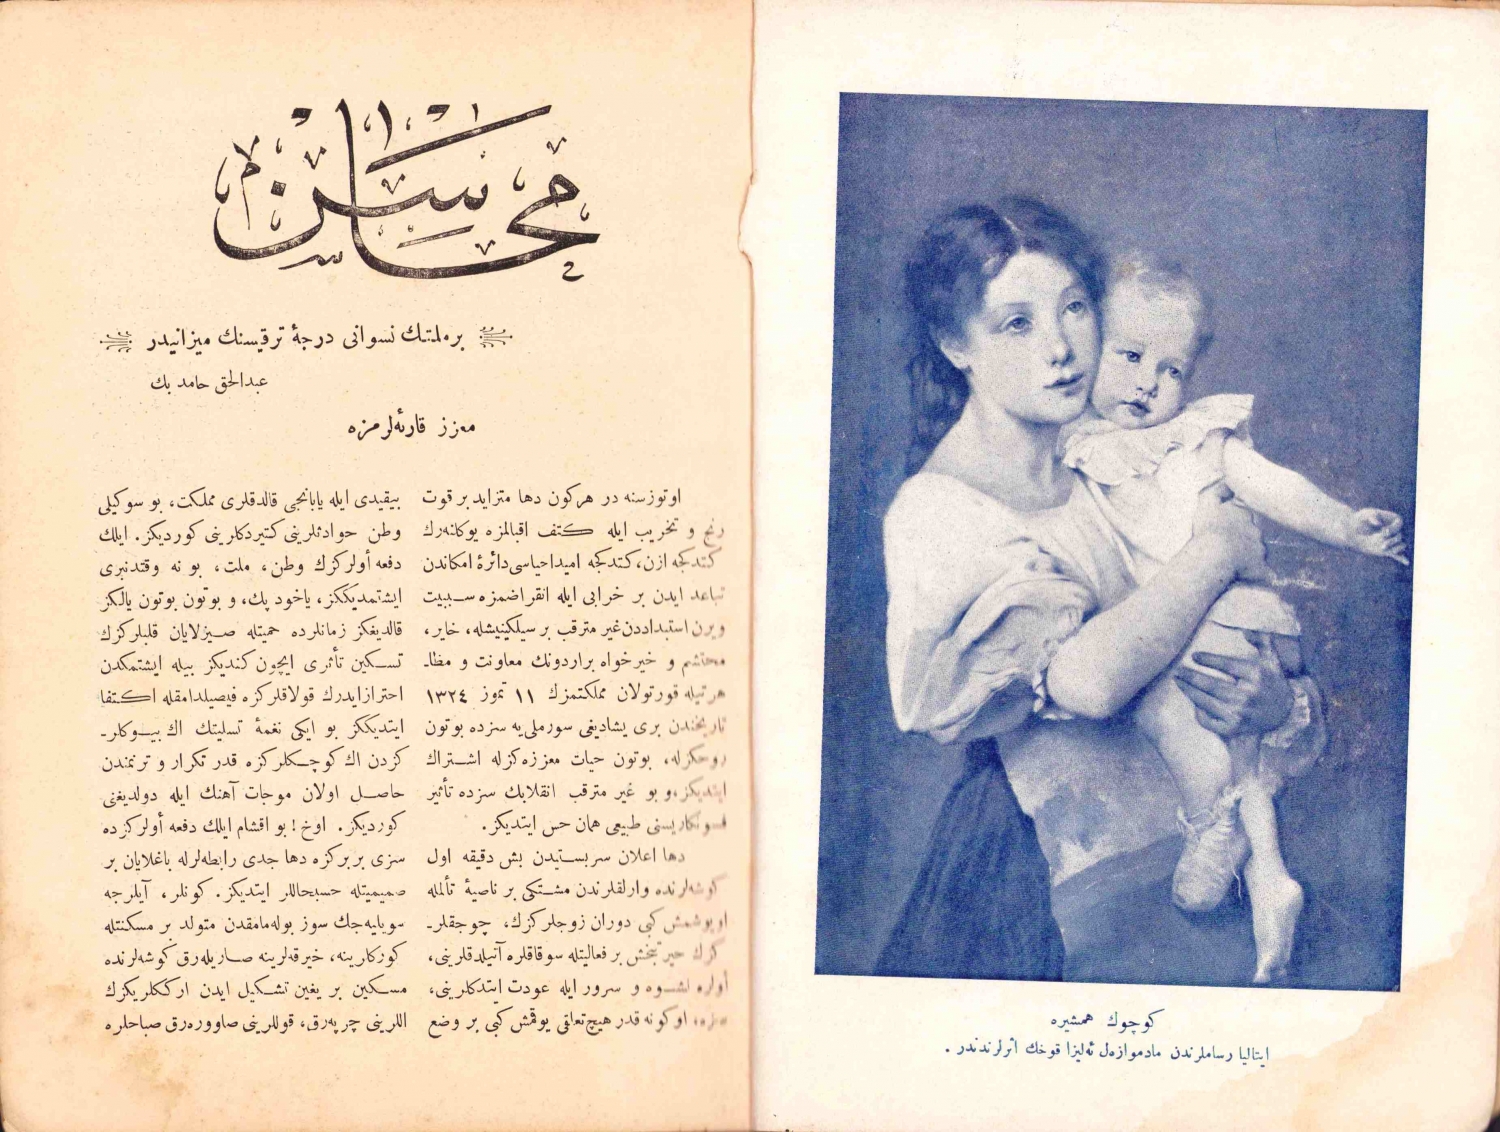 محاسن
بر ملتك نسوانی درجهٔ ترقیسنك میزانیدر
عبدالحق حامد بك
معزز قارئه‌لرمزه
اوتوز سنه در هركون دها متزاید بر قوت
رنج و تخریب ایله كتف اقبالمزه یوكلنه‌رك
كتدكجه ازن، كتدكجه امید احیاسی دائرهٔ امكاندن
تباعد ایدن بر خرابی ایله انقراضمزه سببیت
ویرن استبداددن غیر مترقب بر سیلكینیشله، خایر،
محتشم و خیرخواه براردونك معاونت و مظا-
هرتیله قورتولان مملكتمزك ١١ تموز ١٣٢٤
تاریخندن بری یشادیغی سورملی‌یه سزده بوتون
روحكزله، بوتون حیات معززه‌كزله اشتراك
ایتدیكز، و بو غیر مترقب انقلابك سزده تأثیر
فسونكاریسنی طبیعی همان حس ایتدیكز.
دها اعلان سربستیدن بش دقیقه اول
كوشه‌لرنده وارلقلرندن مشتكی بر ناصیهٔ تألمله
اویوشمش كبی دوران زوجلركزك، چوجقلر-
كزك حیرتبخش بر فعالیتله سوقاقلره آتیلدقلرینی،
أولره نشوه و سرور ایله عودت ایتدكلرینی،
سزه، اوكونه قدر هیچ تعلقی یوقمش كبی بر وضع
بیقیدی ایله یابانجی قالدقلری مملكت، بو سوكیلی
وطن حوادثلرینی كتیردكلرینی كوردیكز. ایلك
دفعه أولركزك وطن، ملت، بو نه وقتدنبری
ایشتمدیككز، یاخود پك، و بوتون بوتون یالكز
قالدیغكز زمانلرده حمیتله صیزلایان قلبلركزك
تسكین تأثری ایچون كندیكز بیله ایشتمكدن
احتراز ایدرك قولاقلركزه فیصیلدامقله اكتفا
ایتدیككز بو ایكی نغمهٔ تسلیتك اك بیوكلر-
كزدن اك كوچكلركزه قدر تكرار و ترنمندن
حاصل اولان موجات آهنك ایله دولدیغنی
كوردیكز. اوخ! بو اقشام ایلك دفعه أولركزده
سزی بربركزه دها جدی رابطه‌لرله باغلایان بر
صمیمیتله حسبحاللر ایتدیكز. كونلر، آیلرجه
سویلیه‌جك سوز بوله‌مامقدن متولد بر مسكنتله
كوزكارینه، خیرقه‌لرینه صاریله‌رق كوشه‌لرنده
مسكین بر یغین تشكیل ایدن اركككلریكزك
اللرینی چرپه‌رق، قوللرینی صاووره‌رق صباحلره
كوچوك همشیره
ایتالیا رساملرندن مادموازه‌ل ئه‌لیزا قوخك اثرلرندندر.